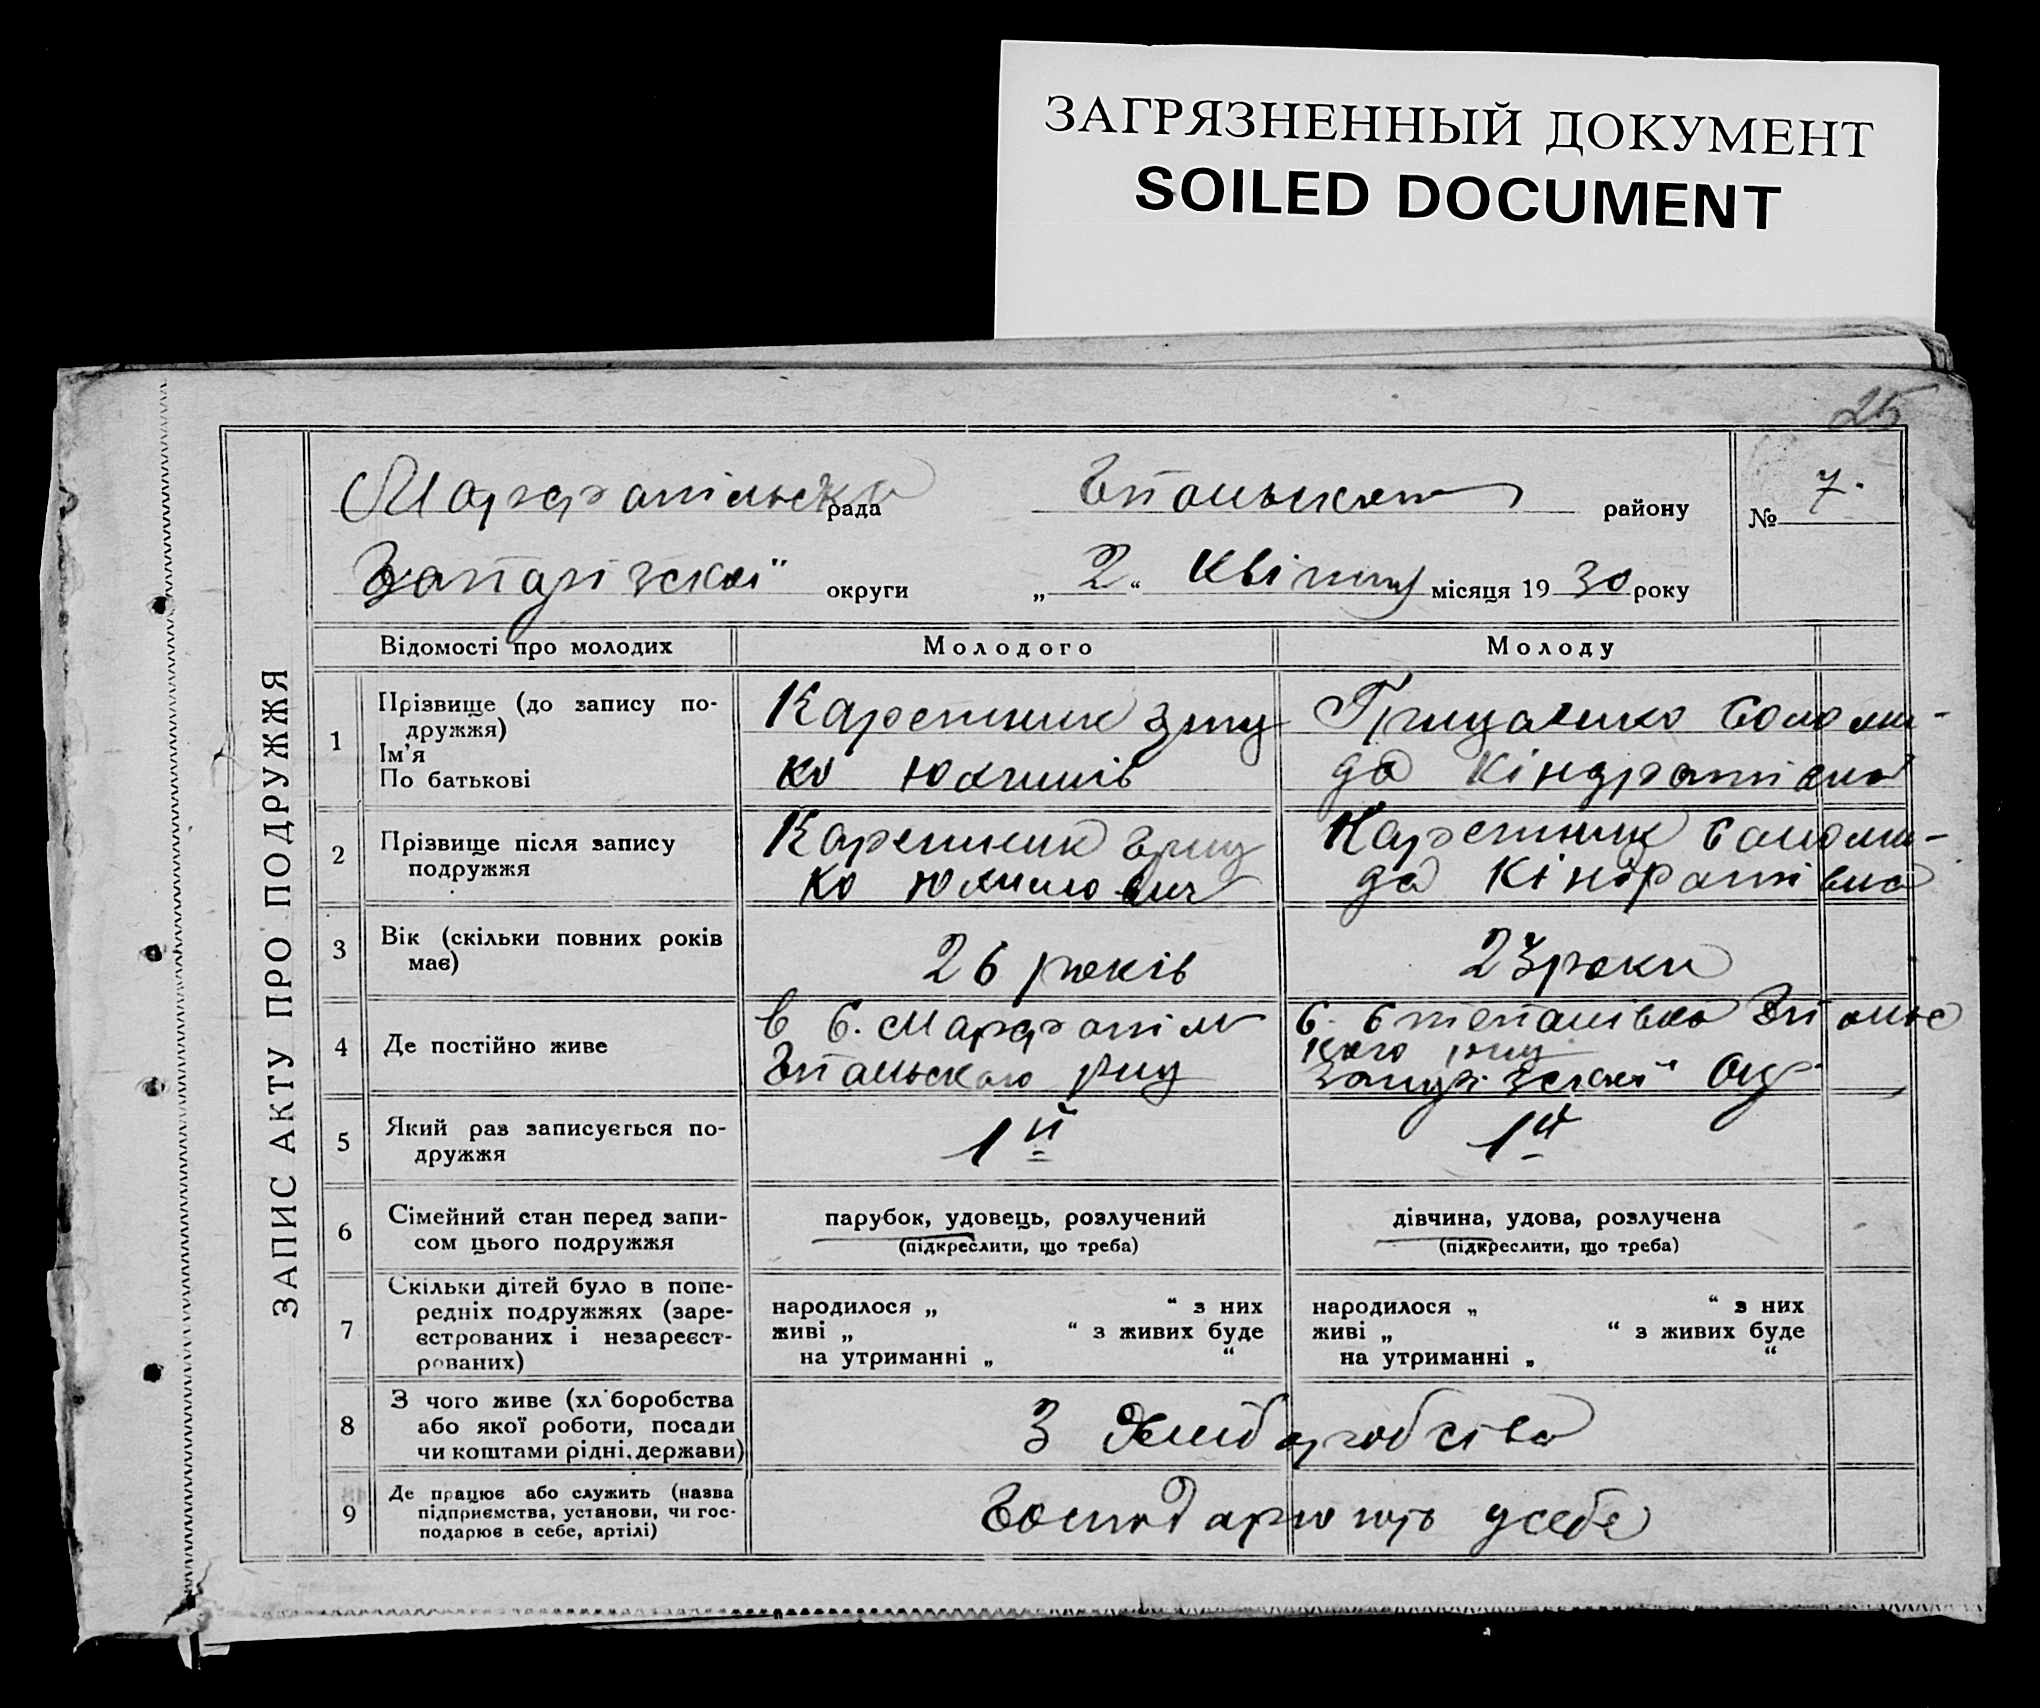 ЗАГРЯЗНЕННЫЙ ДОКУМЕНТ
SOILED DOCUMENT
25
ЗАПИС АКТУ ПРО ПОДРУЖЖЯ
рада району № 7.
Запорізскої округи „ 2 “ Квітня місяця 19 30 року
Відомості про молодих Молодого Молоду
1 Прізвище (до запису по-
дружжя)
Ім'я
По батькові
Каретник Гриц
ко Юхимів
Гриценко Соломи-
да Кіндратівна
2 Прізвище після запису
подружжя
Каретник Гриц
ко Юхимович
Каретник Соломи-
да Кіндратівна
3 Вік (скільки повних років
має)
26 років
23 роки
4 Де постійно живе
в с.
с. Степанівка
кого
Запорізскої Ок
5 Який раз записується по-
дружжя
1й
1й
6 Сімейний стан перед запи-
сом цього подружжя
парубок, удовець, розлучений
(підкреслити, що треба)
дівчина, удова, розлучена
(підкреслити, що треба)
7 Скільки дітей було в попе-
редніх подружжях (заре-
єстрованих і незареєст-
рованих)
народилося „ “ з них
живі „ “ з живих буде
на утриманні „ “
народилося „ “ з них
живі „ “ з живих буде
на утриманні „ “
8 З чого живе (хліборобства
або якої роботи, посади
чи коштами рідні, держави)
З хліборобства
9 Де працює або служить (назва
підприємства, установи, чи гос-
подарює в себе, артілі)
Господарюють усебе